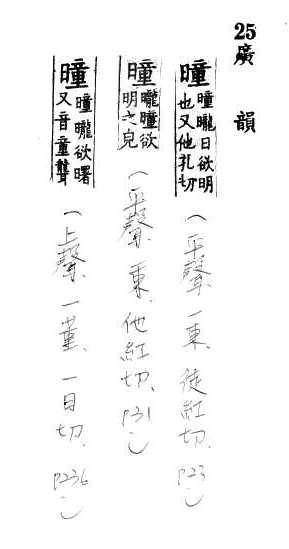 25 廣韻
曈 曈曨日欲明
也又他孔切
(平聲、一東、徒紅切、P23)
曈 曨曈欲
明之皃
(平聲、東、他紅切、P31)
曈 曈曨欲曙
又音童聾
(上聲、一董、一日切、P236)